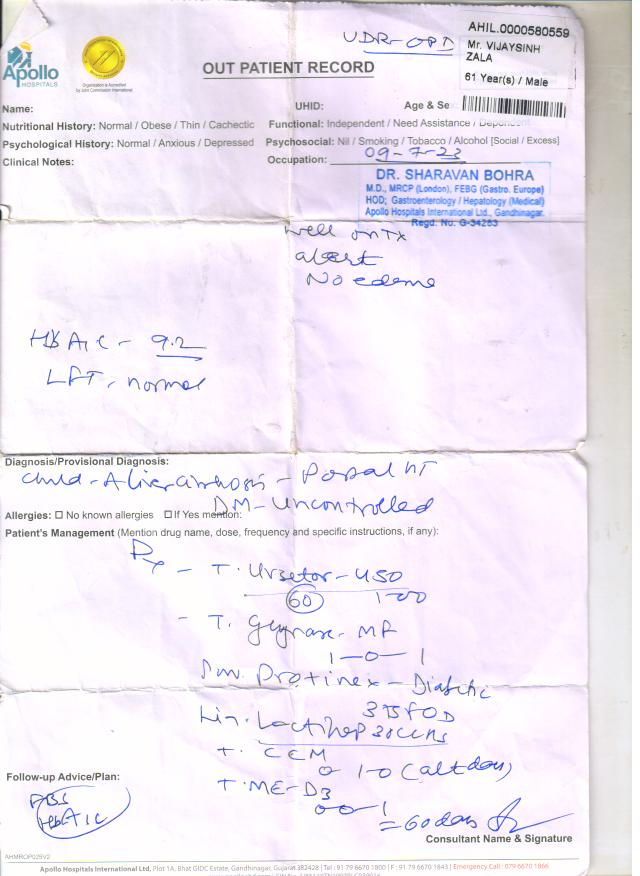 UDR-OPD
AHIL.0000580559
Mr. VIJAYSINH
ZALA
61 Year(s) / Male
Apollo
HOSPITALS
Organization is Accredited
by Joint Commission International
OUT PATIENT RECORD
Name: UHID: Age & Se
Nutritional History: Normal / Obese / Thin / Cachectic Functional: Independent / Need Assistance / Dependent
Psychological History: Normal / Anxious / Depressed Psychosocial: Nil / Smoking / Tobacco / Alcohol [Social / Excess]
Clinical Notes: Occupation: 09-7-23
DR. SHARAVAN BOHRA
M.D., MRCP (London), FEBG (Gastro. Europe)
HOD; Gastroenterology / Hepatology (Medical)
Apollo Hospitals International Ltd., Gandhinagar.
Regd. No. G-34263
Well on Tx
alert
No edema
HbA1c - 9.2
LFT - normal
Diagnosis/Provisional Diagnosis:
Child-A liver cirrhosis - Portal HT
DM - Uncontrolled
Allergies: ☐ No known allergies ☐ If Yes mention:
Patient's Management (Mention drug name, dose, frequency and specific instructions, if any):
Rx - T. Ursetor - 450
60 1-00
- T. MF
1-0-1
Protinex - Diabetic
3 TSF OD
Lactihep 30cc HS
T. CCM
0 1-0 (alt day)
Follow-up Advice/Plan:
T. ME-D3
00-1
FBS
HbA1C
= 60 days
Consultant Name & Signature
AHMROP025V2
Apollo Hospitals International Ltd, Plot 1A, Bhat GIDC Estate, Gandhinagar, Gujarat 382428 | Tel : 91 79 6670 1800 | F : 91 79 6670 1843 | Emergency Call : 079 6670 1866